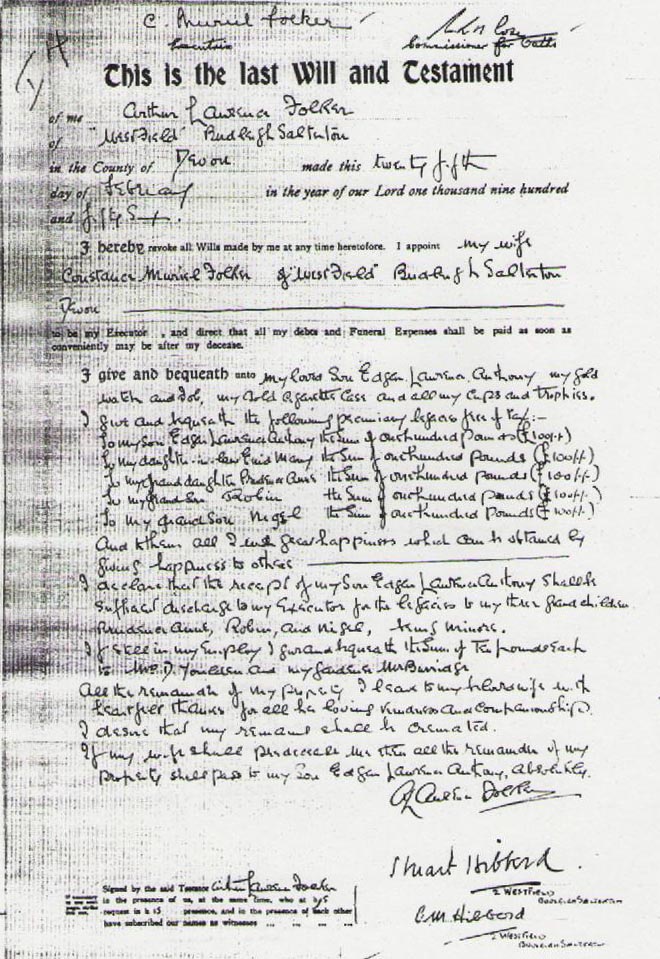 C. Muriel Folker
Executrix
Commissioner for Oaths
This is the last Will and Testament
of me Arthur Lawrence Folker
of "Westfield" Budleigh Salterton
in the County of Devon made this twenty fifth
day of February in the year of our Lord one thousand nine hundred
and fifty
I hereby revoke all Wills made by me at any time heretofore. I appoint my wife
Constance Muriel Folker of "Westfield" Budleigh Salterton
Devon
to be my Executor , and direct that all my debts and Funeral Expenses shall be paid as soon as
conveniently may be after my decease.
I give and bequeath unto my loved Son Edgar Lawrence Anthony my gold
watch and fob, my Gold Cigarette Case and all my Cups and trophies.
I give and bequeath the following pecuniary legacies free of tax:-
To my Son Edgar Lawrence Anthony the Sum of one hundred Pounds (£100//)
To my daughter-in-law Enid Mary the Sum of one hundred pounds (£100//)
To my granddaughter Prudence Anne the Sum of one hundred pounds (£100//)
To my grandson Robin the Sum of one hundred pounds (£100//)
To my grandson Nigel the Sum of one hundred pounds (£100//)
And to them all I wish great happiness which can be obtained by
giving happiness to others
I declare that the receipt of my Son Edgar Lawrence Anthony shall be
sufficient discharge to my Executor for the legacies to my three grandchildren
Prudence Anne, Robin, and Nigel, being minors.
If still in my employ I give and bequeath the Sum of Ten pounds each
to Mrs. D. Youlden and my gardener Mr Burridge
All the remainder of my property I leave to my beloved wife with
heartfelt thanks for all her loving kindness and companionship.
I desire that my remains shall be cremated.
If my wife shall predecease me then all the remainder of my
property shall pass to my Son Edgar Lawrence Anthony, absolutely.
A Lawrence Folker
Stuart Hibberd
2 Westfield
Budleigh Salterton
C.M. Hibberd
2 Westfield
Budleigh Salterton
Signed by the said Testator Arthur Lawrence Folker
in the presence of us, at the same time, who at his
request in his presence, and in the presence of each other
have subscribed our names as witnesses ... ... ... ...